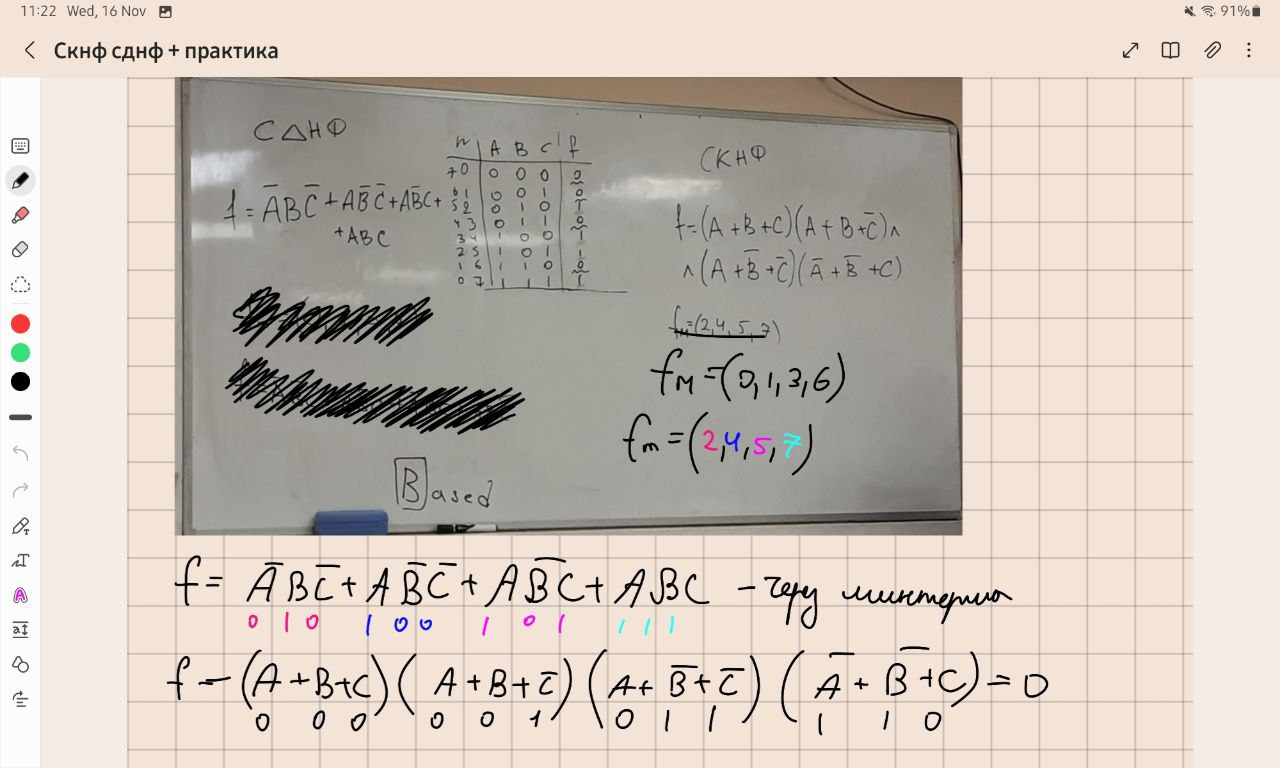 11:22 Wed, 16 Nov 91%
Скнф сднф + практика
СДНФ
f = A̅BC̅ + AB̅C̅ + AB̅C +
+ABC
n A B C f
7 0 0 0 0 0
6 1 0 0 1 0
5 2 0 1 0 1
4 3 0 1 1 0
3 4 1 0 0 1
2 5 1 0 1 1
1 6 1 1 0 0
0 7 1 1 1 1
СКНФ
f=(A+B+C)(A+B+C̅)∧
∧(A+B̅+C̅)(A̅+B̅+C)
fₘ=(2,4,5,7)
f_M=(0,1,3,6)
fₘ=(2,4,5,7)
Based
f= A̅BC̅ + AB̅C̅ + AB̅C + ABC – через минтермы
0 1 0 1 0 0 1 0 1 1 1 1
f = (A+B+C)(A+B+C̅)(A+B̅+C̅)(A̅+B̅+C)=0
0 0 0 0 0 1 0 1 1 1 1 0